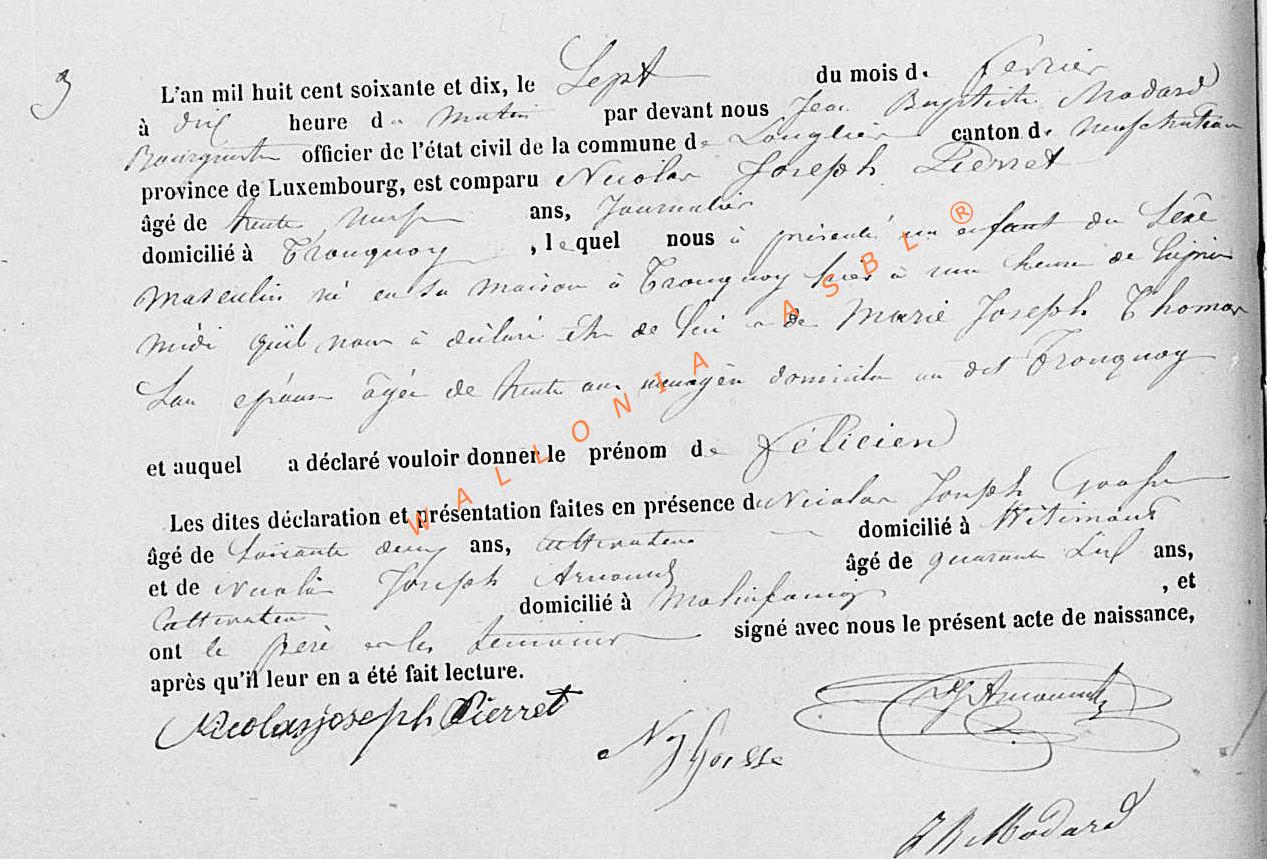 3
L'an mil huit cent soixante et dix, le Sept du mois de fevrier
à dix heure du matin par devant nous Jean Baptiste Modard
Bourgmestre officier de l'état civil de la commune de Longlier canton de neufchateau
province de Luxembourg, est comparu Nicolas Joseph Pierret
âgé de trente neuf ans, Journalier
domicilié à Tronquoy, lequel nous à présenté un enfant du Sexe
Masculin né en sa maison à Tronquoy hier à une heure de
midi qu'il nous à déclaré être de lui et de Marie Joseph Thomas
Son épouse âgée de trente ans menagère domicilié au dit Tronquoy
et auquel a déclaré vouloir donner le prénom de Félicien
Les dites déclaration et présentation faites en présence de Nicolas Joseph Gosse
âgé de Soixante deux ans, cultivateur domicilié à Witimont
et de Nicolas Joseph Arnould âgé de quarante ans,
Cultivateur domicilié à Molinfaing, et
ont le père et les temoins signé avec nous le présent acte de naissance,
après qu'il leur en a été fait lecture.
Nicolas joseph Pierret
NJ Gosse
NJ Arnould
JB Modard
WALLONIA ASBL ®